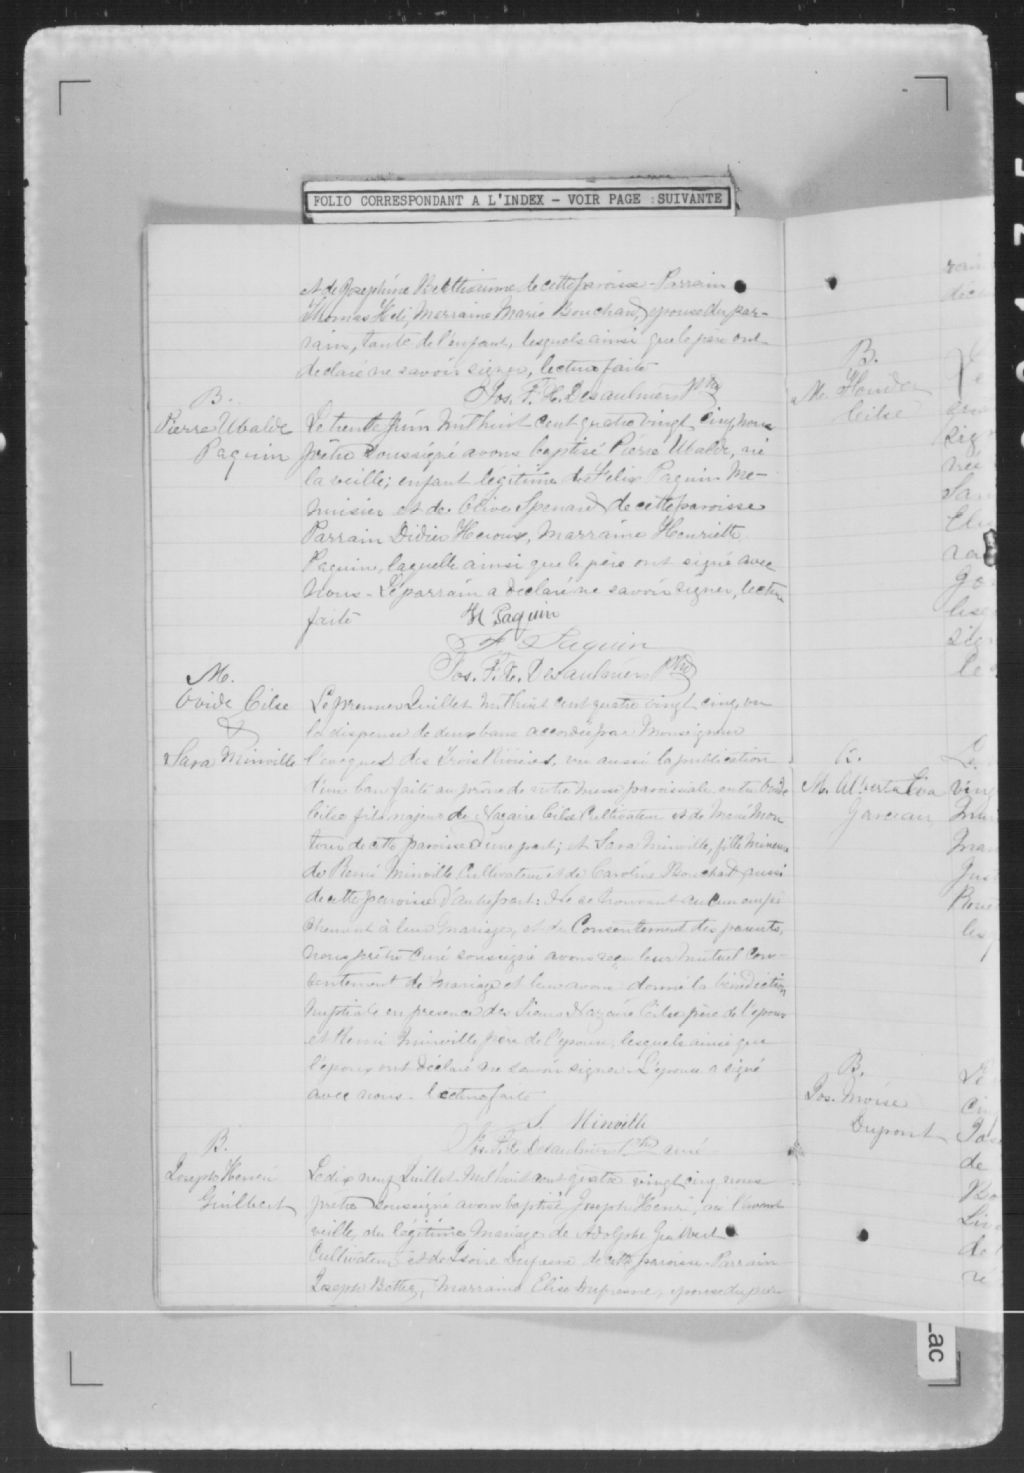 FOLIO CORRESPONDANT A L'INDEX - VOIR PAGE : SUIVANTE
et de Joséphine de cette paroisse - Parrain
Thomas Marraine Marie Bouchard, épouse du par-
rain, tante de l'enfant, lesquels ainsi que le père ont
déclaré ne savoir signer, lecture faite
Jos. F. X. Desaulniers Ptre
B.
Pierre Ubalde
Paquin
Le trente Juin mil huit cent quatre vingt cinq nous
prêtre soussigné avons baptisé Pierre Ubalde, né
la veille; enfant légitime de Félix Paquin Me-
nuisier et de Olive Spenard de cette paroisse
Parrain Didier Heroux, Marraine Henriette
Paquin, laquelle ainsi que le père ont signé avec
nous - Le parrain a déclaré ne savoir signer, lecture
faite
H Paquin
F Paquin
Jos. F. X. Desaulniers Ptre
M.
Ovide Cilse
&
Sara Minville
Le premier Juillet mil huit cent quatre vingt cinq, vu
la dispense de deux bans accordée par Monseigneur
l'evêque des Trois Rivières, vu aussi la publication
d'un ban faite au prône de notre messe paroissiale entre Ovide
Cilse fils majeur de Nazaire Cilse Cultivateur et de
de cette paroisse d'une part; et Sara Minville, fille mineure
de Remi Minville Cultivateur et de Caroline Bouchard aussi
de cette paroisse d'autre part: Ne se trouvant aucun empê
chement à leur mariage, et du Consentement des parents,
nous prêtre Curé soussigné avons reçu leur mutuel con-
sentement de mariage et leur avons donné la bénédiction
nuptiale en présence de Sieurs Nazaire Cilse père de l'époux
et Remi Minville père de l'épouse, lesquels ainsi que
l'époux ont déclaré ne savoir signer. L'épouse a signé
avec nous. lecture faite
S. Minville
Jos. F. X. Desaulniers Ptre curé
B.
Joseph Henri
Guilbert
Le dix neuf Juillet mil huit cent quatre vingt cinq nous
prêtre soussigné avons baptisé Joseph Henri, né l'avant
veille, du légitime mariage de Adolphe Guilbert
Cultivateur et de Dufresne de cette paroisse. Parrain
Joseph Marraine Elise Dufresne, épouse du par
B.
M.
Cilse
B.
M. Alberta Eva
B.
Jos. Moïse
Dupont
-ac